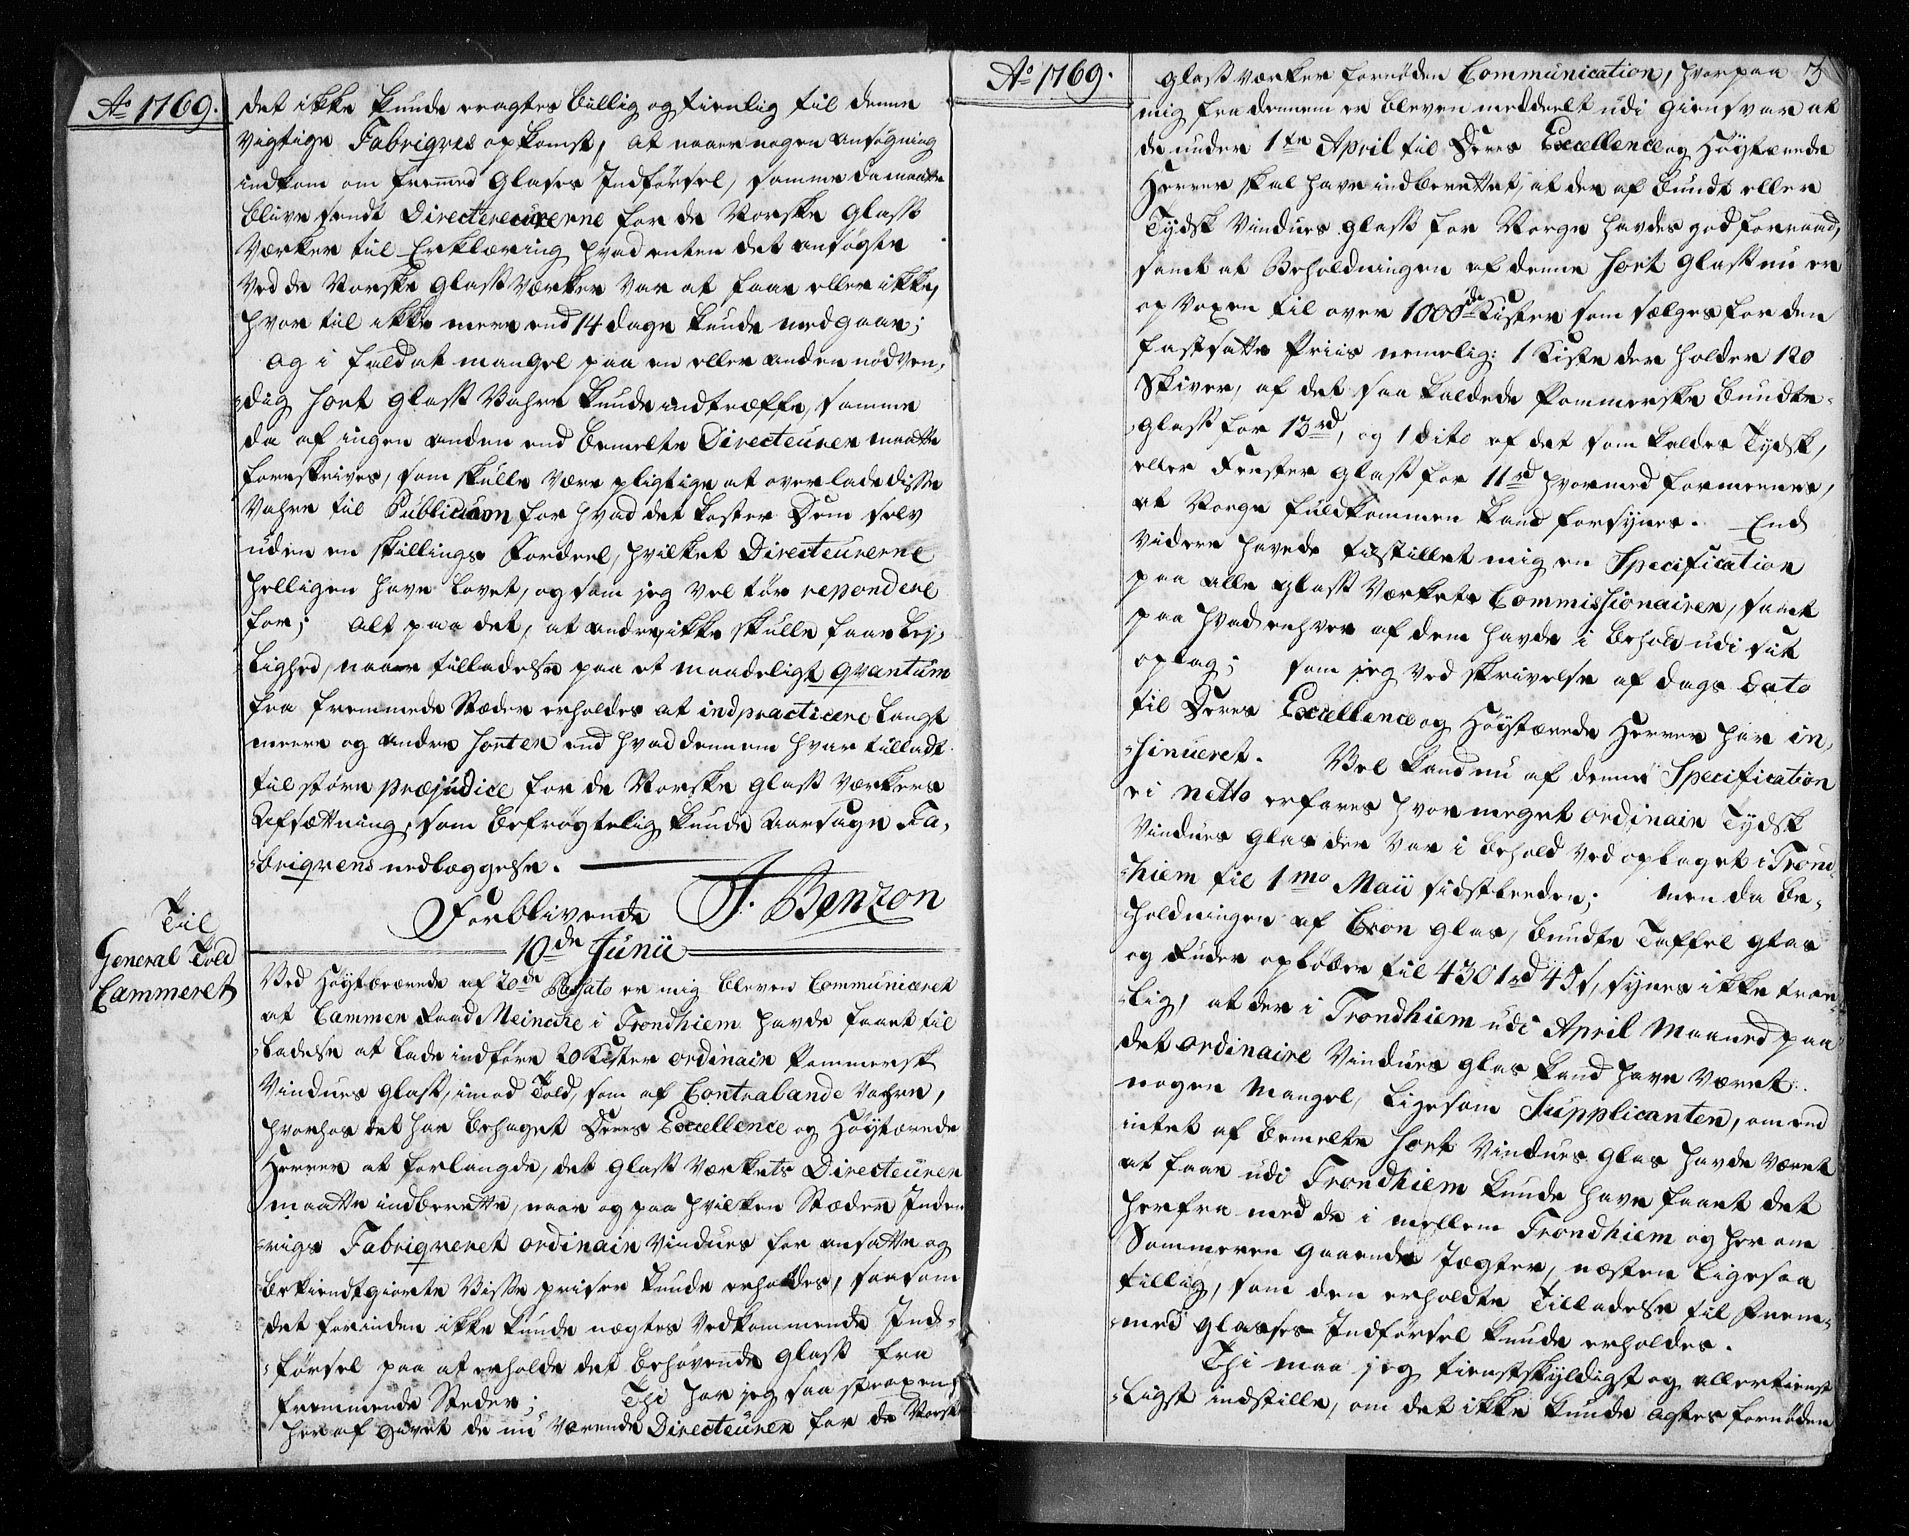 Ao 1769.
det ikke kunde eragtes billig og tienlig til denne
vigtige Fabriqves opkomst, at naar nogen ansøgning
indkom om fremmed Glases Indførsel, samme da maatte
blive sendt Directeurerne for de Norske Glass
Værker til Erklæring hvad enten det ansøgte
ved de Norske Glass Værker var at faae eller ikke,
hvor til ikke mere end 14 dage kunde medgaae;
og i fald at mangel paa en eller anden nødven,
-dig Sort Glass Vahre kunde indtræffe, samme
da af ingen anden end bemelte Directeurer maatte
foreskrives, som skulle være pligtige at overlade disse
Vahre til Publicum for hvad det koster Dem selv
uden en skillings Fordeel, hvilket Directeurerne
helligen have lovet, og som jeg vel tør repondere
for; Alt paa det, at andre, ikke skulle faae lej,
-lighed, naar tilladelse paa et maadeligt qvantum
fra fremmede Stæder erholdes at indpracticere langt
meere og andre Sorter end hvad dennem hvar tilladt
til større præjudice for de Norske Glass Værkers
Afsætning, som befrygtelig kunde aarsage Fa,
-briqvens nedlæggelse.
Forblivende J. Benzon
10de Junii
Til
General Told
Cammeret
Ved Høystærede af 20de Passato er mig bleven Communiceret
at Cammer Raad Meincke i Trondhiem havde faaet til
-ladelse at lade indføre 20 Kister ordinair Pommersk
Vindues Glass, imod Told, som af Contrabande Vahre,
hvorhos det har behaget Deres Excellence og Høystærede
Herrer at forlange, det Glass Værkets Directeurer
maatte indberette, naar og paa hvilken Stæder Inden
-rigs Fabriqveret ordinair Vindues for ansatte og
bekiendtgiorte Visse priser kunde erholdes, saasom
det forinden ikke kunde nægtes vedkommende Ind-
-førsel paa at erholde det behøvende Glass fra
fremmende Steder; Thi har jeg saa strax en
her af givet de nu værende Directeurer for de Norske
Ao 1769.
3
Glass Værker fornøden Communication, hvorpaa
mig fra dennem er bleven meddeelt udi Giensvar at
de under 1te April til Deres Excellence og Høystærede
Herrer skal have indberettet, at der af bundt eller
Tydsk Vindues Glass for Norge havdes god forraad,
samt at Beholdningen af denne Sort Glass nu er
op voxen til over 1000de Kister som sælges for den
fastsatte Priis nemelig: 1 Kiste der holder 120
Skiver, af det saa kaldede Pommerske bundte-
-Glass for 13rd, og 1 dito af det som kaldes Tydsk,
eller Fenster Glass for 11rd hvormed formeenes,
at Norge fuldkommen kand forsynes. End
videre havde tilstillet mig en Specification
paa alle Glass Værkets Commissionairer, samt
paa hvad enhver af dem havde i behold udi sit
oplag; som jeg ved skrivelse af dags dato
til Deres Excellence og Høystærede Herrer har in,
-sinueret. Vel kand nu af denne Specification
ei netto erfares hvor meget ordinair Tydsk
Vindues Glas der var i behold ved oplaget i Trond
-hiem til 1mo Maii sidstleeden; men da be-
-holdningen af Cron Glas, bundte Taffel Glas
og Ruder opløber til 4301rd 45s, synes ikke troe
-lig, at der i Trondhiem udi April Maaned paa
det ordinaire Vindues Glas kand have været
nogen Mangel, ligesom Supplicanten, om end
intet af bemelte Sort Vindues Glas havde været
at faae udi Trondhiem kunde have faaet det
herfra med de i mellem Trondhiem og her om
Sommeren gaaende Jægter, næsten ligesaa
tillig, som den erholdte Tilladelse til Frem-
-med Glasses Indførsel kunde erholdes.
Thi maa jeg tienstskyldigst og allertienst
-ligst indstille, om det ikke kunde agtes fornøden